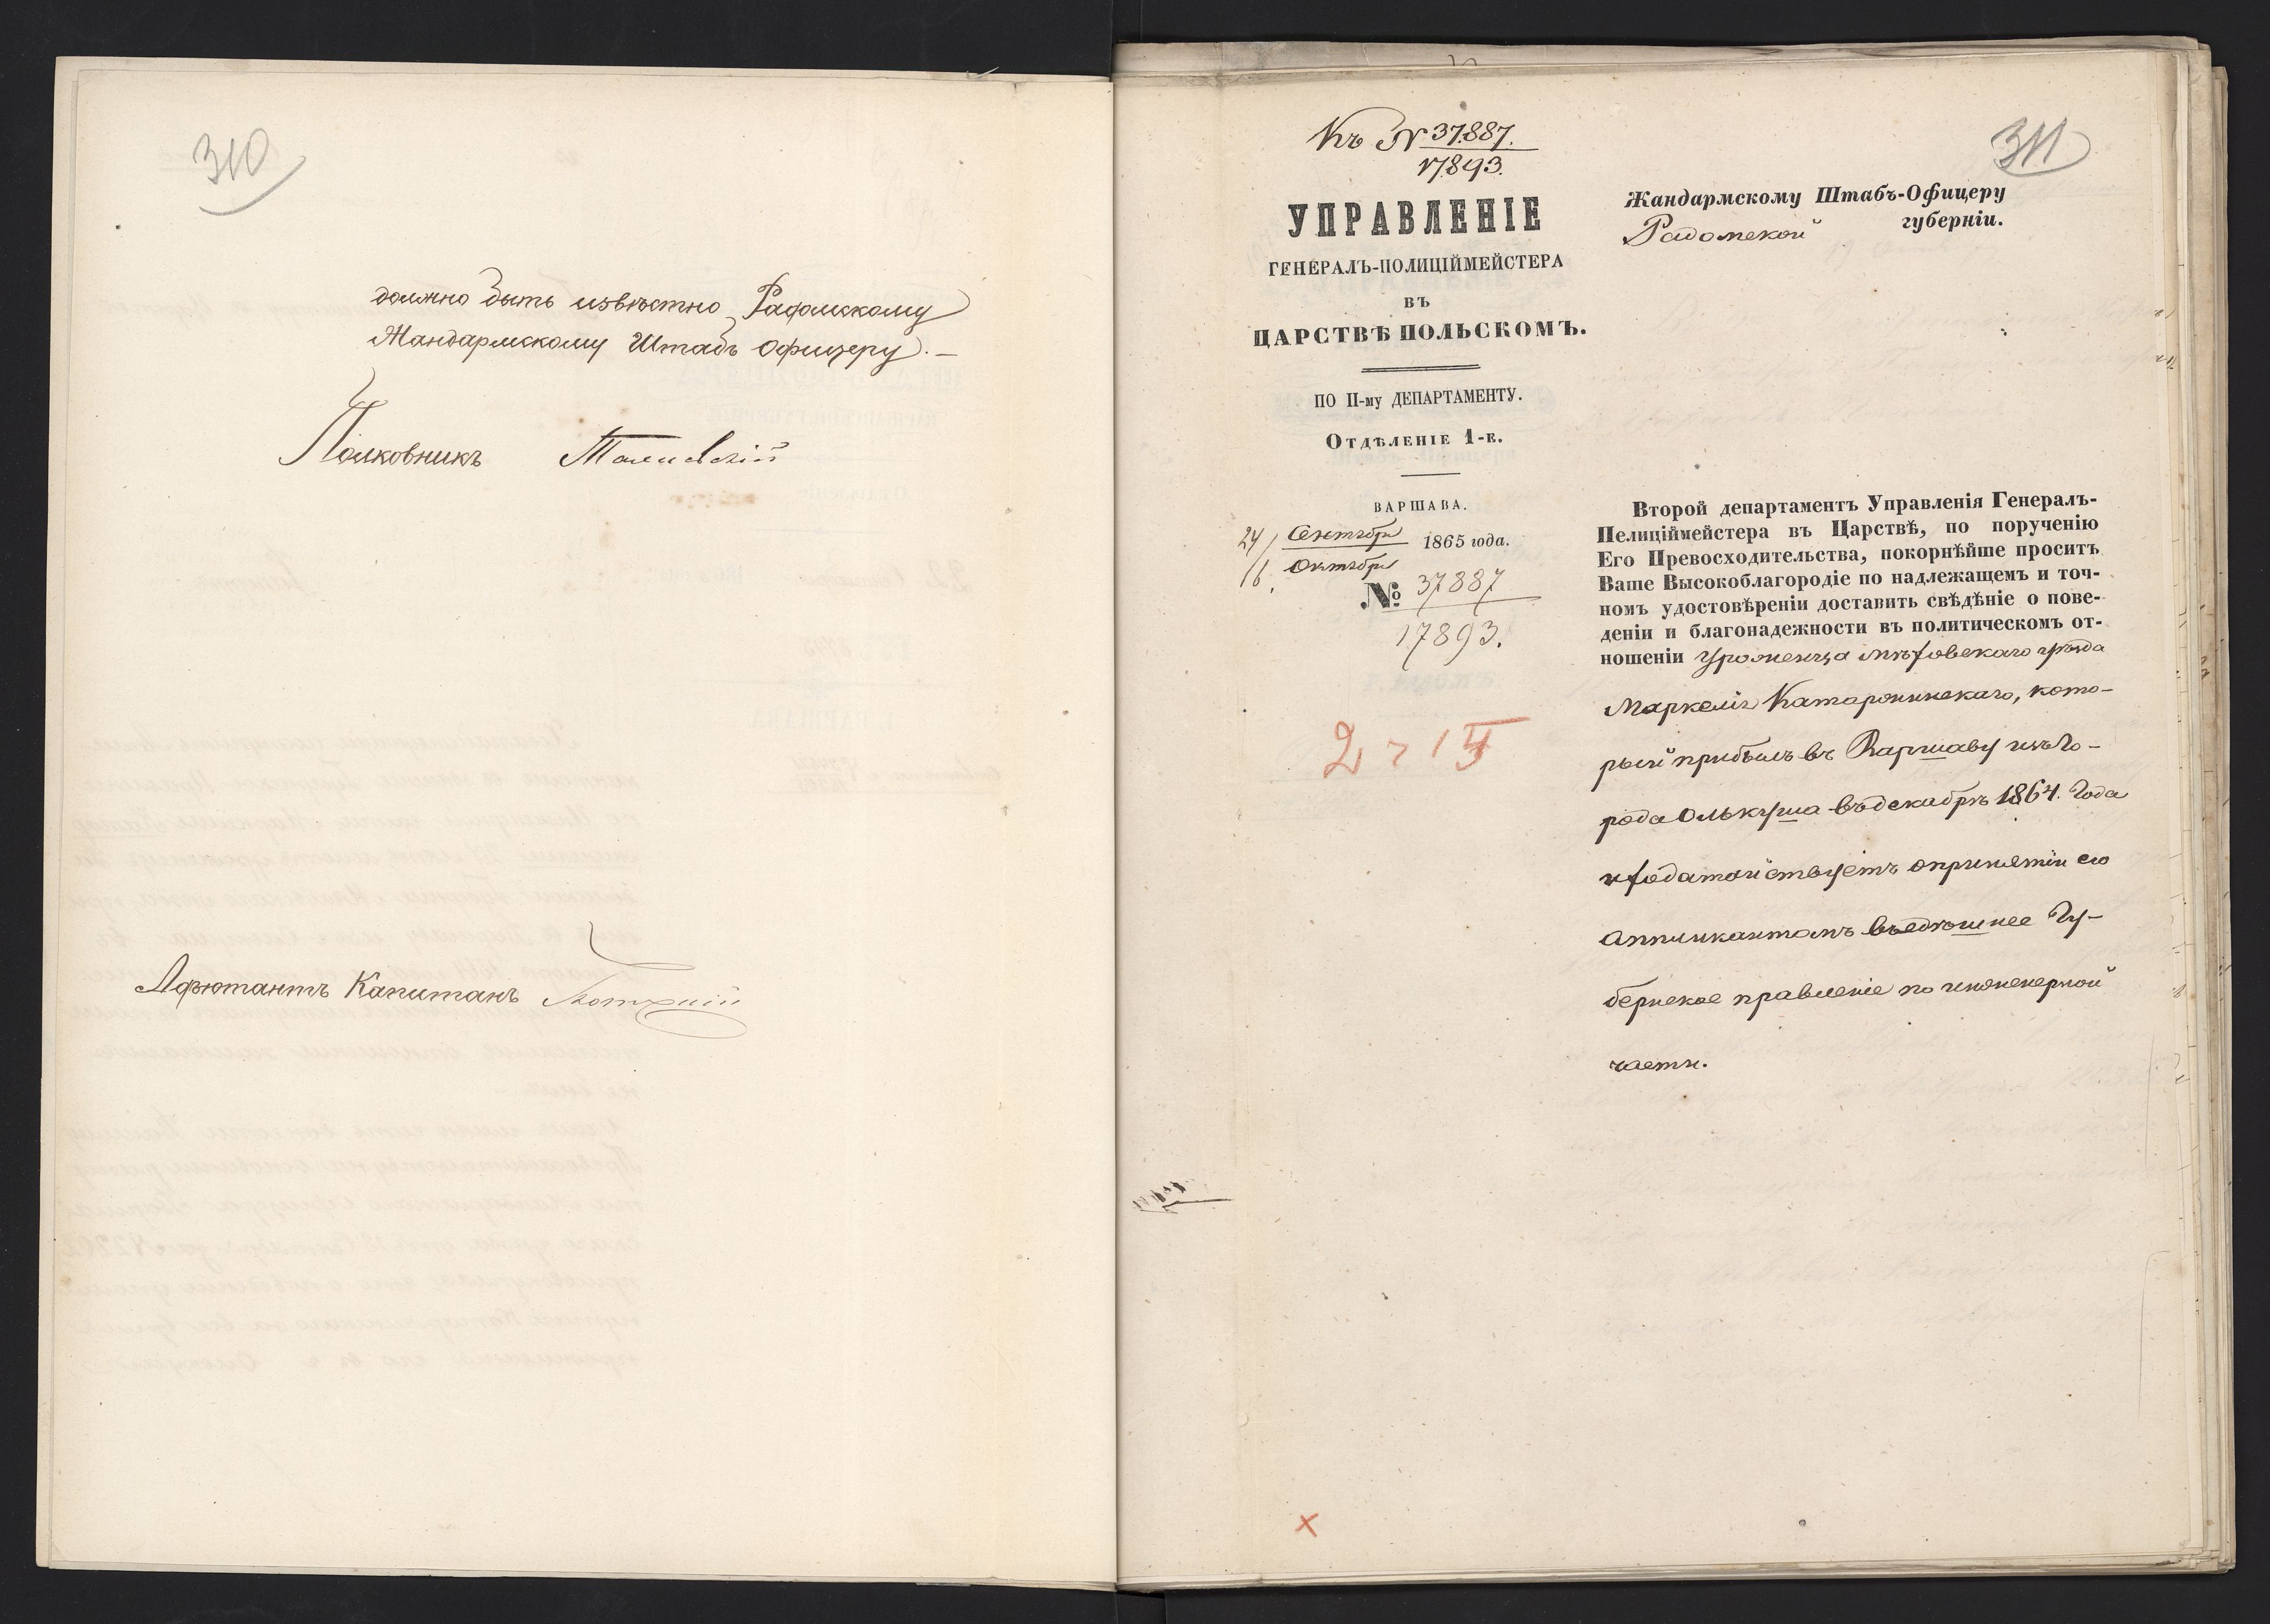 310
должно быть извѣстно Радомскому
Жандармскому Штабъ Офицеру. —
Полковникъ
Адъютантъ Капитанъ
311
Къ № 37887.
17893.
УПРАВЛЕНІЕ
ГЕНЕРАЛЪ-ПОЛИЦІЙМЕЙСТЕРА
ВЪ
ЦАРСТВѢ ПОЛЬСКОМЪ.
ПО II-му ДЕПАРТАМЕНТУ.
Отдѣленіе 1-е.
ВАРШАВА.
24/ Сентября 1865 года.
/6. Октября
№ 37887
17893.
Жандармскому Штабъ-Офицеру
Радомской губерніи.
Второй департаментъ Управленія Генералъ-
Пелиціймейстера въ Царствѣ, по порученію
Его Превосходительства, покорнѣйше проситъ
Ваше Высокоблагородіе по надлежащемъ и точ-
номъ удостовѣреніи доставить свѣдѣніе о пове-
деніи и благонадежности въ политическомъ от-
ношеніи уроженца Мѣховскаго уѣзда
Маркелія Катаржинскаго, кото-
рый прибылъ въ Варшаву изъ го-
рода Олькуша въ декабрѣ 1864. года
и ходатайствуетъ о принятіи его
аппликантомъ въ здѣшнее Гу-
бернское правленіе по инженерной
части.